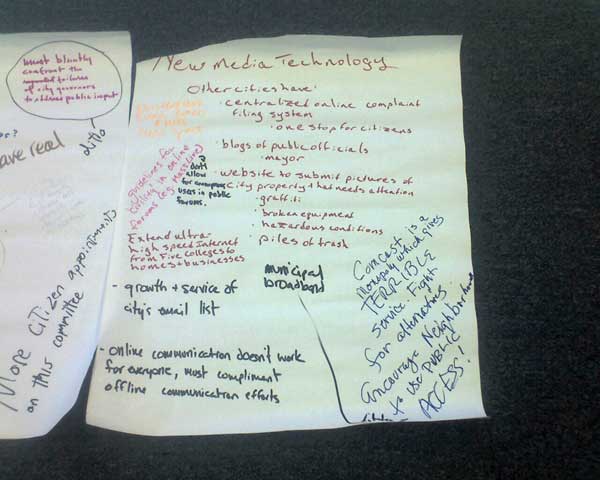 must bluntly
confront the
repeated failures
of city governors
to address public input
ditto
have read
More Citizen appointments
on this committee
New Media Technology
Other cities have:
· centralized online complaint
filing system
· one stop for citizens
· blogs of public officials
· mayor
· website to submit pictures of
city property that needs attention
· graffiti
· broken equipment
· hazardous conditions
· piles of trash
guidelines for
"civility" in online
forums (e.g. MassLive)
?
don't
allow
for anonymous
users in public
forums.
Extend ultra-
high speed Internet
from Five Colleges to
homes + businesses
municipal
broadband
- growth + service of
city's email list
- Online communication doesn't work
for everyone, must compliment
offline communication efforts
Comcast is a
Monopoly which gives
TERRIBLE
service. Fight
for alternatives
Encourage Neighborhoods
to use PUBLIC
ACCESS!